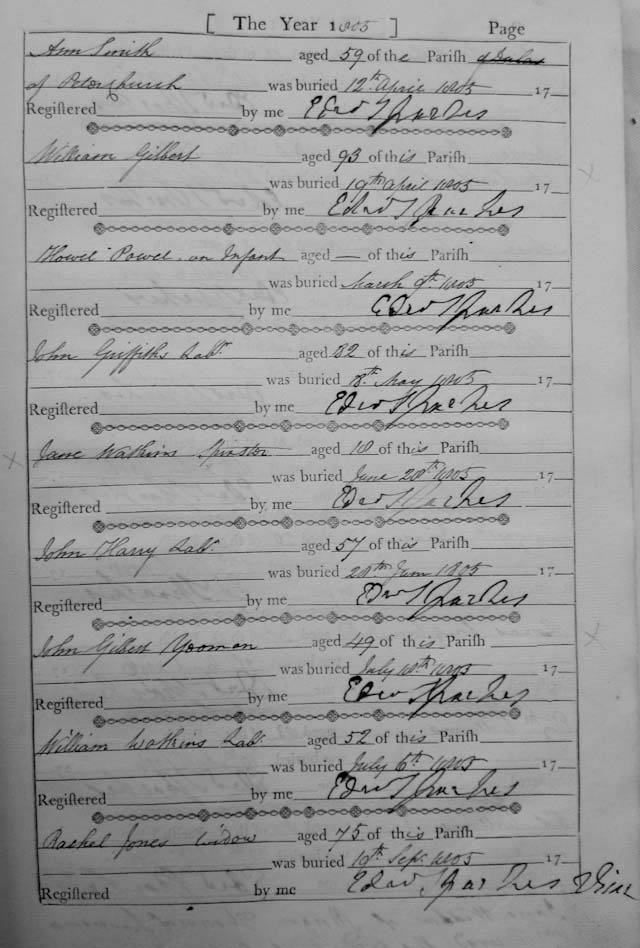 [ The Year 1805 ] Page
Ann Smith aged 59 of the Pariſh
of Peterchurch was buried 12th April 1805 17
Regiſtered by me Edwd Sparkes
William Gilbert aged 93 of this Pariſh
was buried 19th April 1805 17
Regiſtered by me Edwd Sparkes
Howel Powel an Infant aged — of this Pariſh
was buried March 9th 1805 17
Regiſtered by me Edwd Sparkes
John Griffiths Labr. aged 82 of this Pariſh
was buried 8th May 1805 17
Regiſtered by me Edwd Sparkes
Jane Watkins Spinster aged 18 of this Pariſh
was buried June 20th 1805 17
Regiſtered by me Edwd Sparkes
John Harry Labr. aged 57 of this Pariſh
was buried 20th June 1805 17
Regiſtered by me Edwd Sparkes
John Gilbert Yooman aged 49 of this Pariſh
was buried July 1805 17
Regiſtered by me Edwd Sparkes
William Watkins Labr. aged 52 of this Pariſh
was buried July 6th 1805 17
Regiſtered by me Edwd Sparkes
Rachel Jones Widow aged 75 of this Pariſh
was buried Sepr. 1805 17
Regiſtered by me Edwd Sparkes